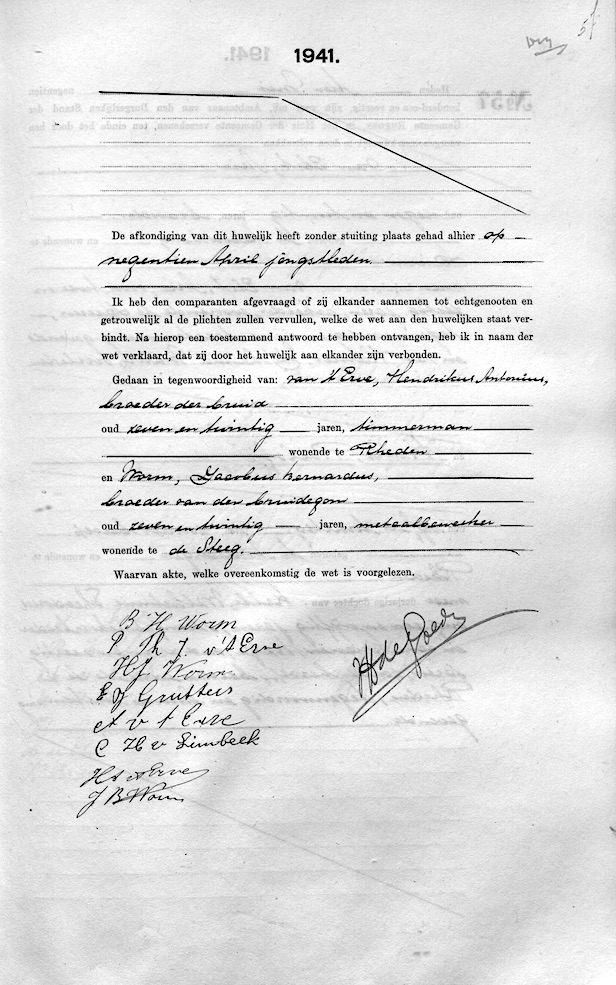 1941.
De afkondiging van dit huwelijk heeft zonder stuiting plaats gehad alhier op
negentien April jongstleden.
Ik heb den comparanten afgevraagd of zij elkander aannemen tot echtgenooten en
getrouwelijk al de plichten zullen vervullen, welke de wet aan den huwelijken staat ver-
bindt. Na hierop een toestemmend antwoord te hebben ontvangen, heb ik in naam der
wet verklaard, dat zij door het huwelijk aan elkander zijn verbonden.
Gedaan in tegenwoordigheid van: van 't Erve, Hendrikus Antonius,
broeder der bruid
oud zeven en twintig jaren, timmerman
wonende te Rheden
en Worm, Jacobus Bernardus,
broeder van den bruidegom
oud zeven en twintig jaren, metaalbewerker
wonende te de Steeg.
Waarvan akte, welke overeenkomstig de wet is voorgelezen.
B H Worm
P Th. J. v 't Erve
HJ. Worm
E J Grutters
A v t Erve
C H v Limbeek
J B Worm